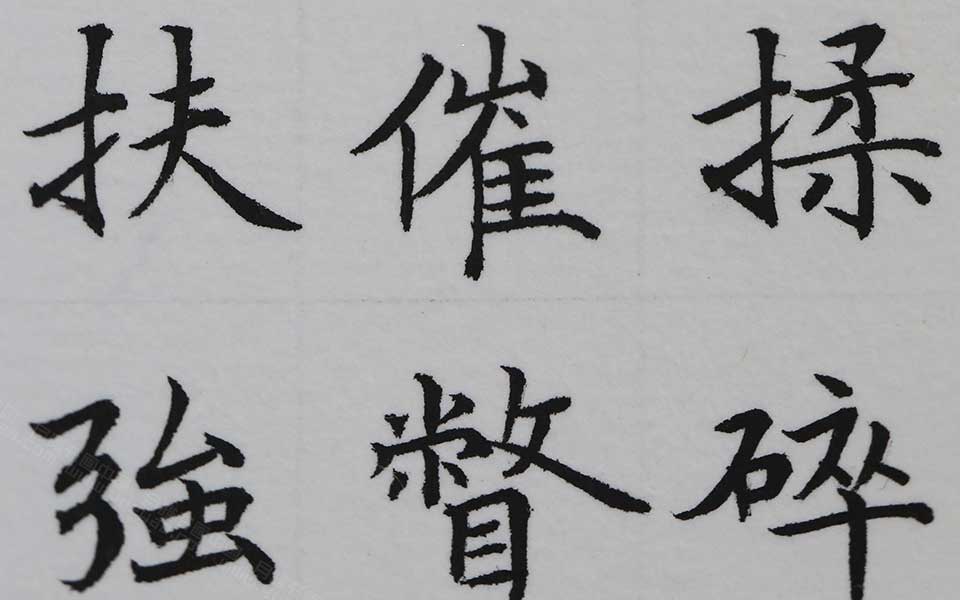 扶催揉
強瞥碎